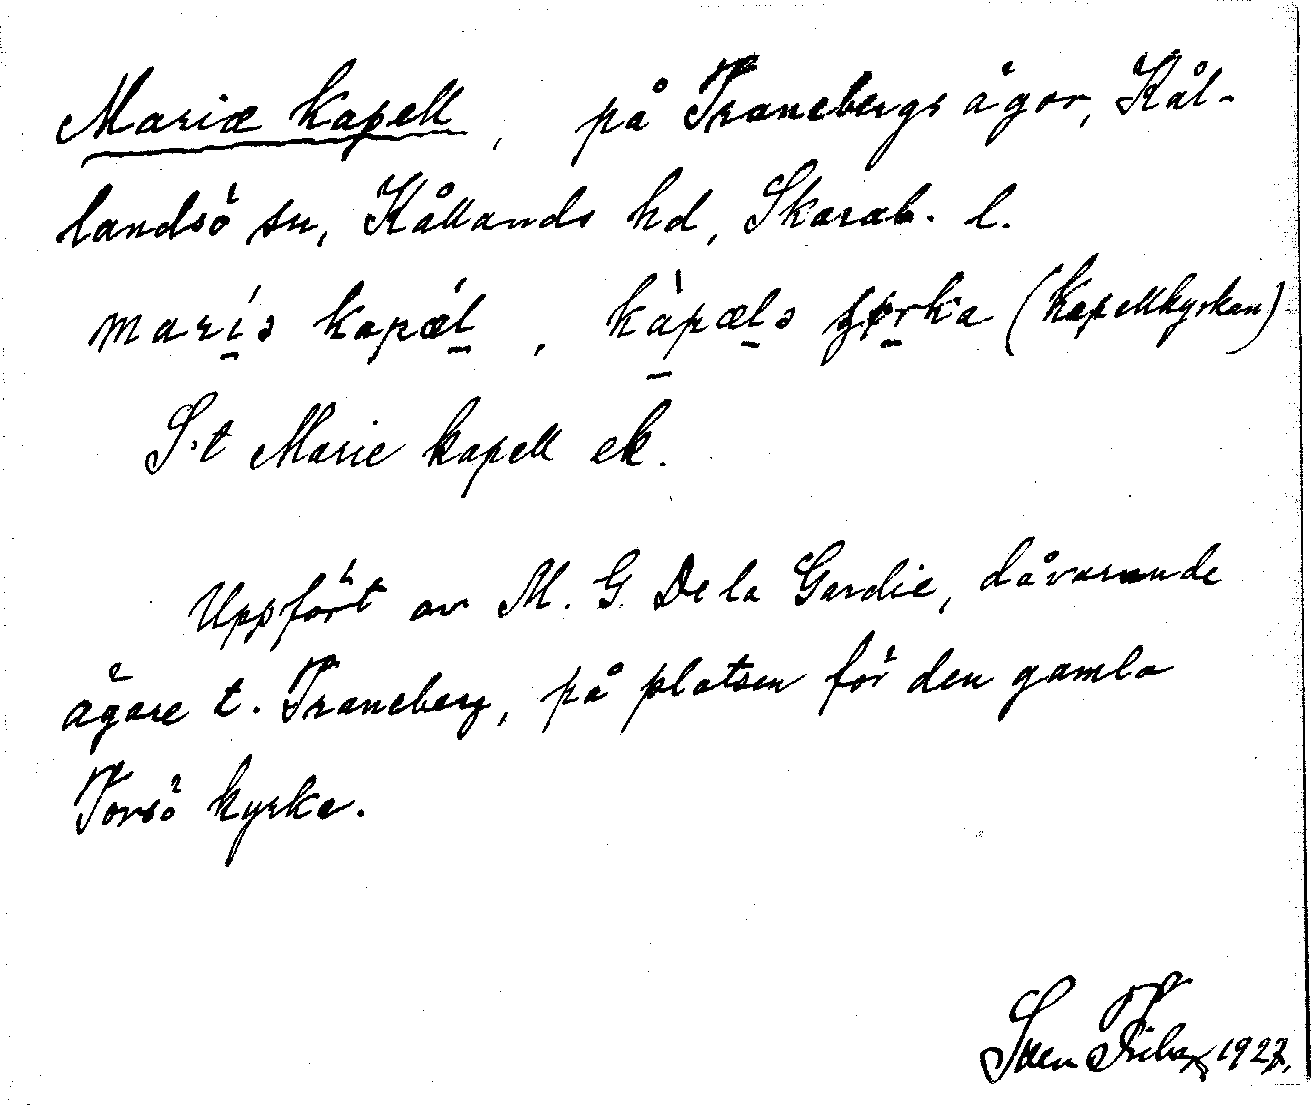 Mariæ kapell, på Tranebergs ägor, Kål-
landsö sn, Kållands hd, Skarab. l.
marís kapǽl, kàpæls çørka (Kapellkyrkan)
S:t Marie kapell ek.
Uppfört av M. G. De la Gardie, dåvarande
ägare t. Traneberg, på platsen för den gamla
Torsö kyrka.
Sven 1927.